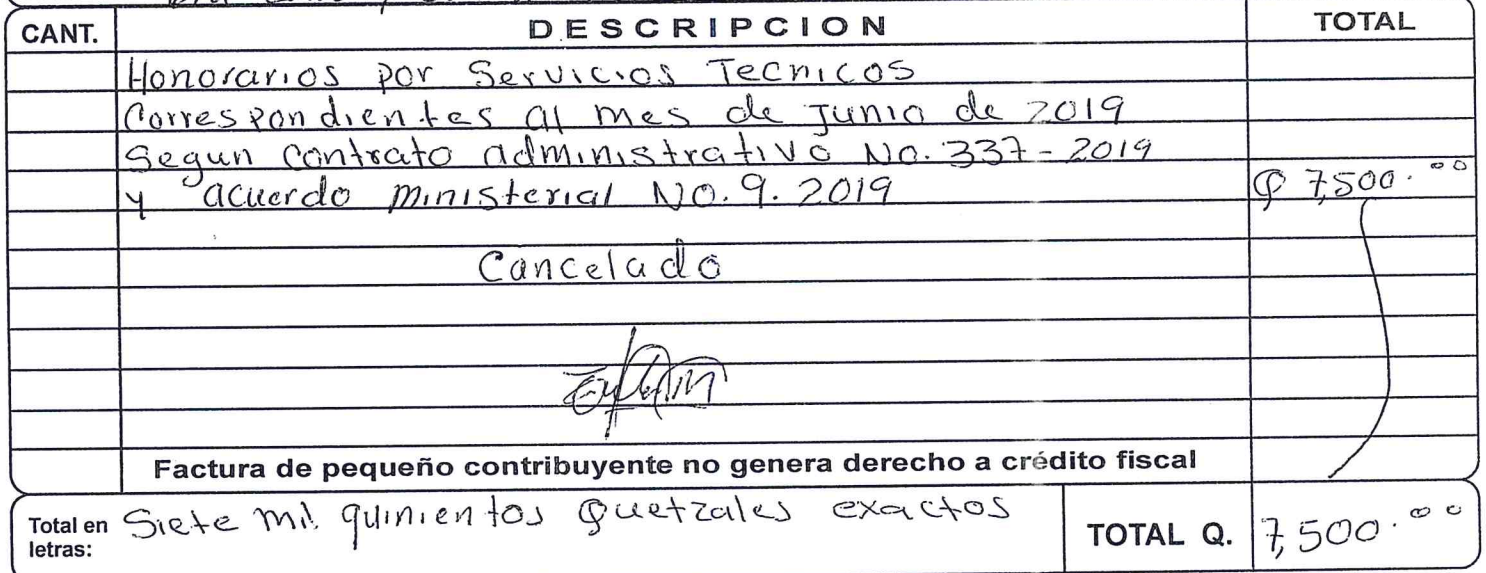 CANT. DESCRIPCION TOTAL
Honorarios por Servicios Tecnicos
Correspondientes al mes de Junio de 2019
Segun Contrato administrativo No. 337-2019
y acuerdo ministerial No. 9. 2019 Q 7,500.00
Cancelado
Factura de pequeño contribuyente no genera derecho a crédito fiscal
Total en letras: Siete mil quinientos Quetzales exactos TOTAL Q. 7,500.00